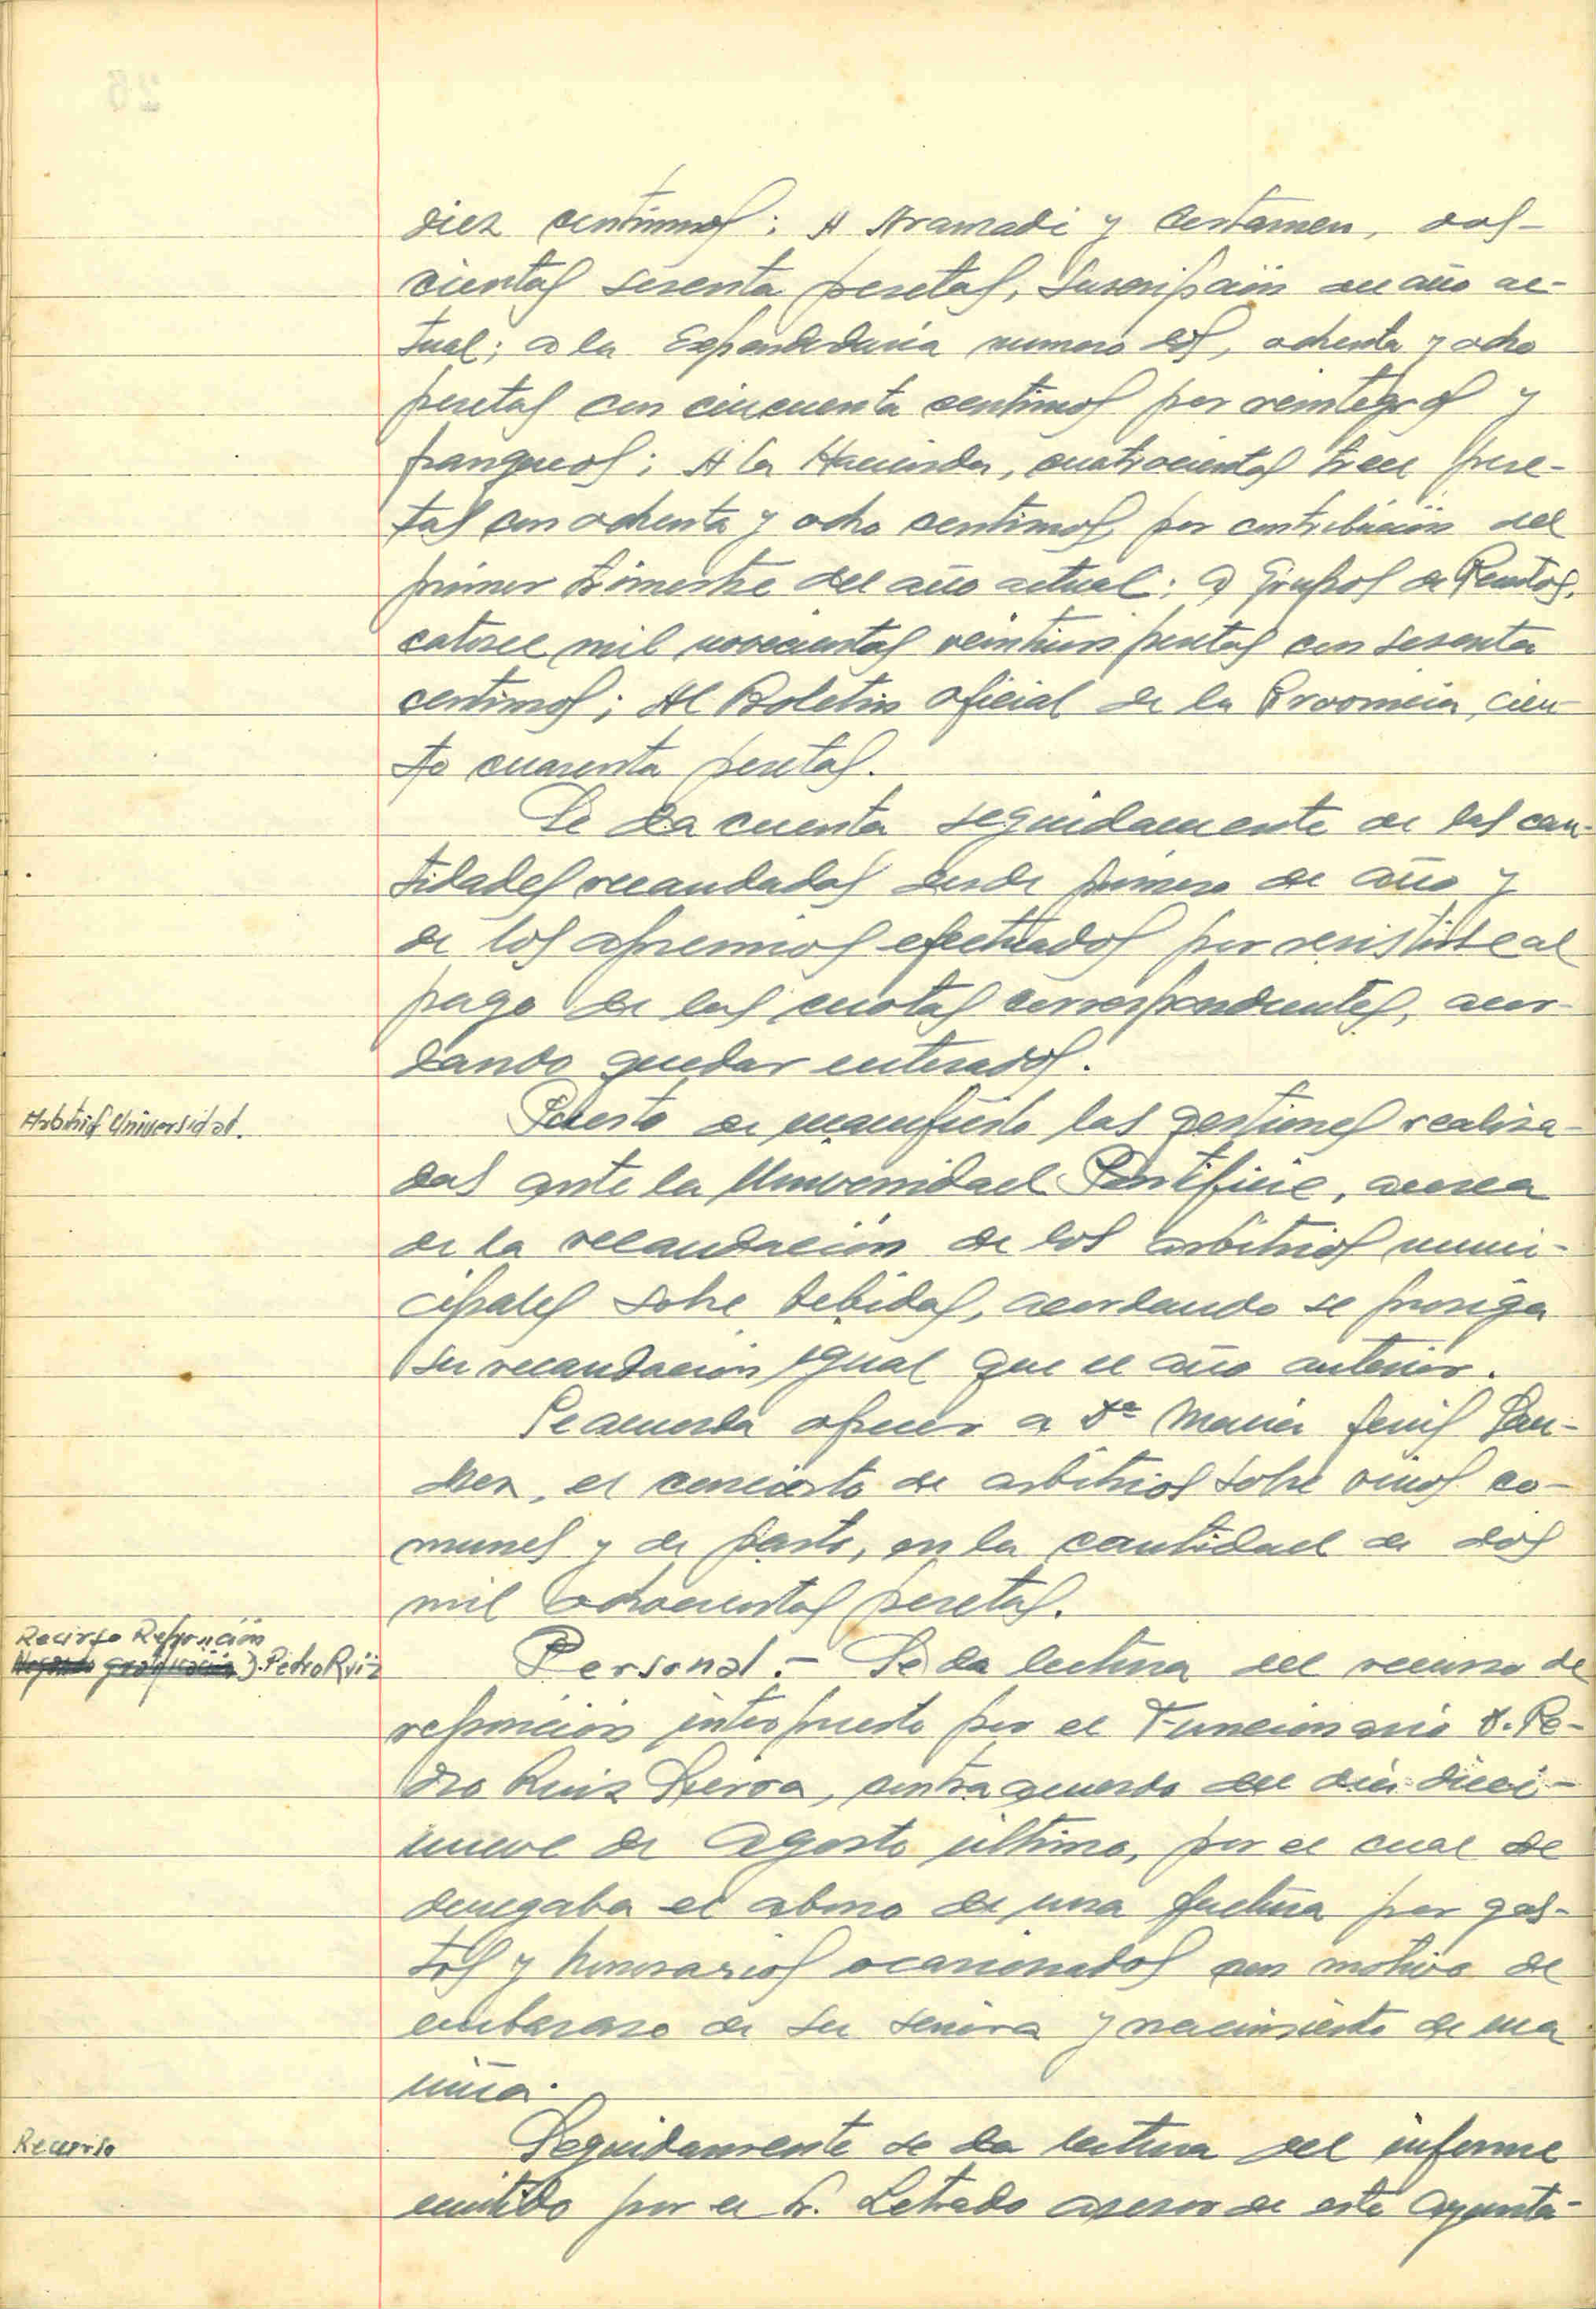 diez centimos; A Aranzadi y Certamen, dos-
cientas sesenta pesetas, suscripción del año ac-
tual; a la Expendeduria numero dos, ochenta y ocho
pesetas con cincuenta centimos por reintegros y
franqueos; A la Hacienda, cuatrocientas trece pese-
tas con ochenta y ocho centimos, por contribución del
primer trimestre del año actual; a Grupos de Puertos,
catorce mil novecientas veintiuna pesetas con sesenta
centimos; Al Boletin oficial de la Provincia, cien-
to cuarenta pesetas.
Se da cuenta seguidamente de las can-
tidades recaudadas desde primero de año y
de los apremios efectuados por resistirse al
pago de las cuotas correspondientes, acor-
dando quedar enterados.
Arbitrios Universidad.
Puesto de manifiesto las gestiones realiza-
das ante la Universidad Pontificie, acerca
de la recaudación de los arbitrios muni-
cipales sobre bebidas, acordando se prosiga
su recaudación igual que el año anterior.
Se acuerda ofrecer a Dª Maria San-
chez, el concierto de arbitrios sobre vinos co-
munes y de pasto, en la cantidad de dos
mil ochocientas pesetas.
Recurso Reposición
Negando gratificación D. Pedro Ruiz
Personal.- Se da lectura del recurso de
reposición interpuesto por el Funcionario D. Pe-
dro Ruiz Sierra, contra acuerdo del dia dieci-
nueve de Agosto ultimo, por el cual se
denegaba el abono de una factura por gas-
tos y honorarios ocasionados con motivo de
embarazo de su señora y nacimiento de una
niña.
Recurso
Seguidamente se da lectura del informe
emitido por el Sr. Letrado asesor de este Ayunta-